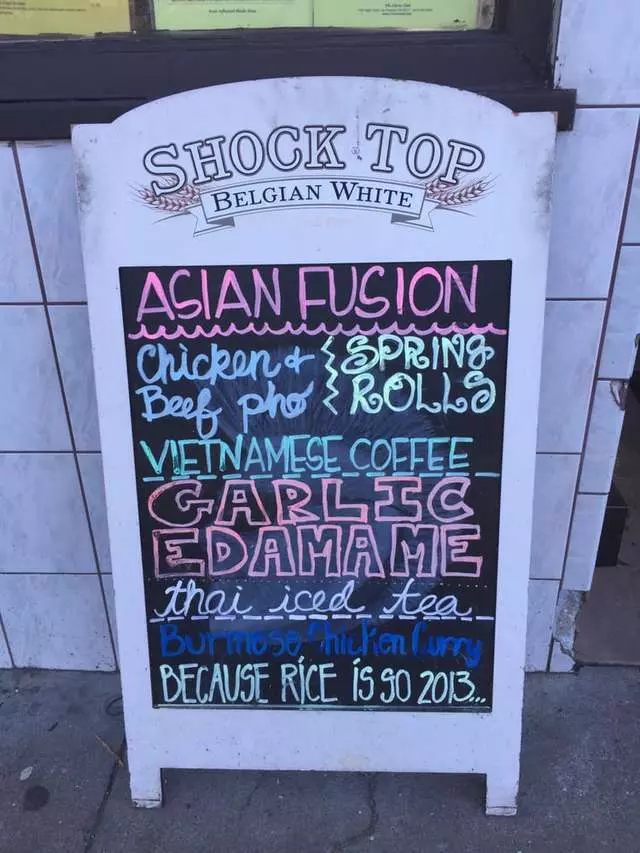 SHOCK TOP
BELGIAN WHITE
ASIAN FUSION
Chicken + Beef pho
SPRING ROLLS
VIETNAMESE COFFEE
GARLIC
EDAMAME
thai iced tea
Burmese Chicken Curry
BECAUSE RICE IS SO 2013...